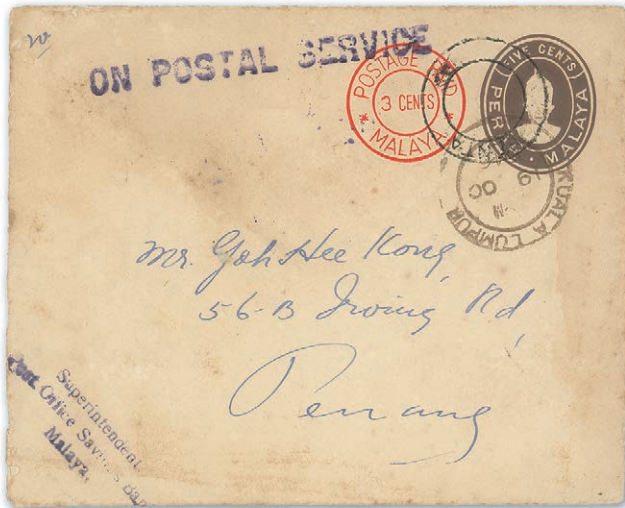 ON POSTAL SERVICE
POSTAGE PAID
3 CENTS
* MALAYA *
FIVE CENTS
MALAYA
KUALA LUMPUR
19 OC
Mr. Goh Hee Kong,
56-B Irving Rd,
Penang
Superintendent
Post Office Savings Ban
Malaya.